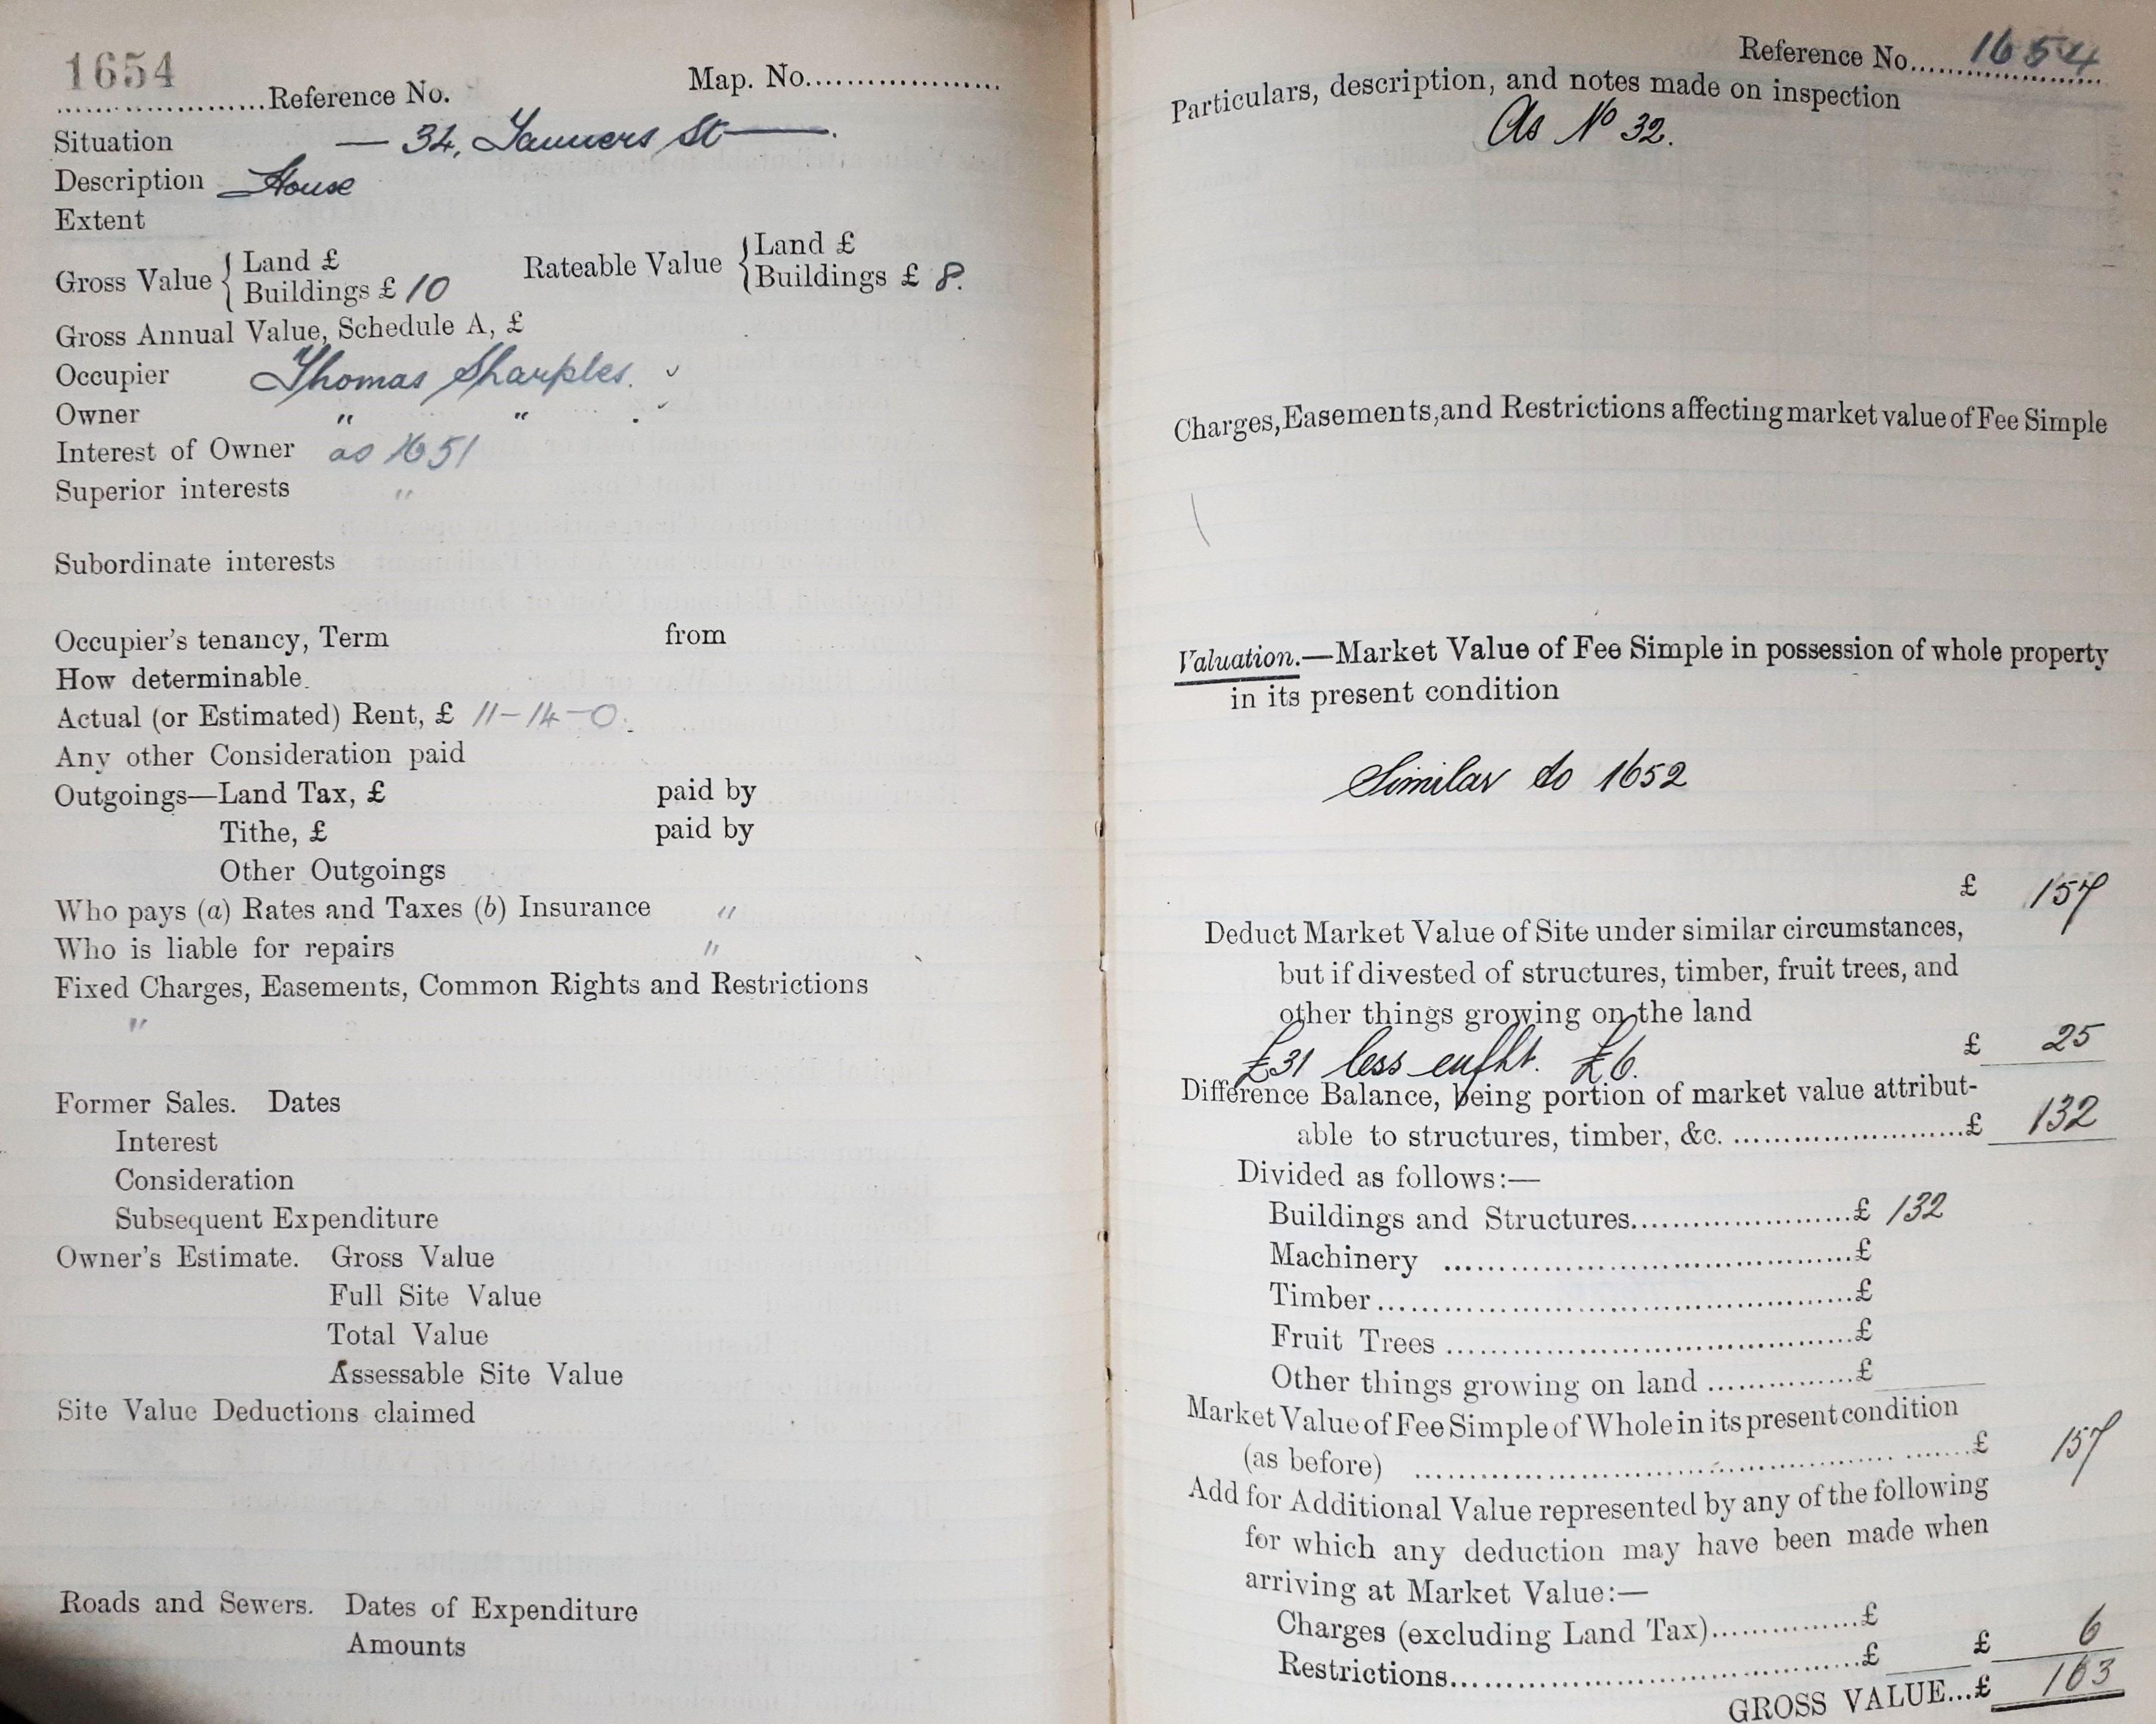 1654
....................Reference No. Map. No...................
Situation — 34, Tanners St —.
Description House
Extent
Gross Value { Land £ Rateable Value { Land £
Buildings £ 10 Buildings £ 8.
Gross Annual Value, Schedule A, £
Occupier Thomas Sharples.
Owner " " .
Interest of Owner as 1651
Superior interests "
Subordinate interests
Occupier's tenancy, Term from
How determinable.
Actual (or Estimated) Rent, £ 11-14-0.
Any other Consideration paid
Outgoings—Land Tax, £ paid by
Tithe, £ paid by
Other Outgoings
Who pays (a) Rates and Taxes (b) Insurance "
Who is liable for repairs "
Fixed Charges, Easements, Common Rights and Restrictions
"
Former Sales. Dates
Interest
Consideration
Subsequent Expenditure
Owner's Estimate. Gross Value
Full Site Value
Total Value
Assessable Site Value
Site Value Deductions claimed
Roads and Sewers. Dates of Expenditure
Amounts
Reference No. 1654
Particulars, description, and notes made on inspection
As No 32.
Charges, Easements, and Restrictions affecting market value of Fee Simple
Valuation.—Market Value of Fee Simple in possession of whole property
in its present condition
Similar to 1652
£ 157
Deduct Market Value of Site under similar circumstances,
but if divested of structures, timber, fruit trees, and
other things growing on the land
£31 less enfht. £6. £ 25
Difference Balance, being portion of market value attribut-
able to structures, timber, &c. ........................£ 132
Divided as follows:—
Buildings and Structures.......................£ 132
Machinery ..........................................£
Timber.................................................£
Fruit Trees ..........................................£
Other things growing on land ...............£
Market Value of Fee Simple of Whole in its present condition
(as before) ..................................................£ 157
Add for Additional Value represented by any of the following
for which any deduction may have been made when
arriving at Market Value:—
Charges (excluding Land Tax)...............£
Restrictions..........................................£ £ 6
GROSS VALUE...£ 163